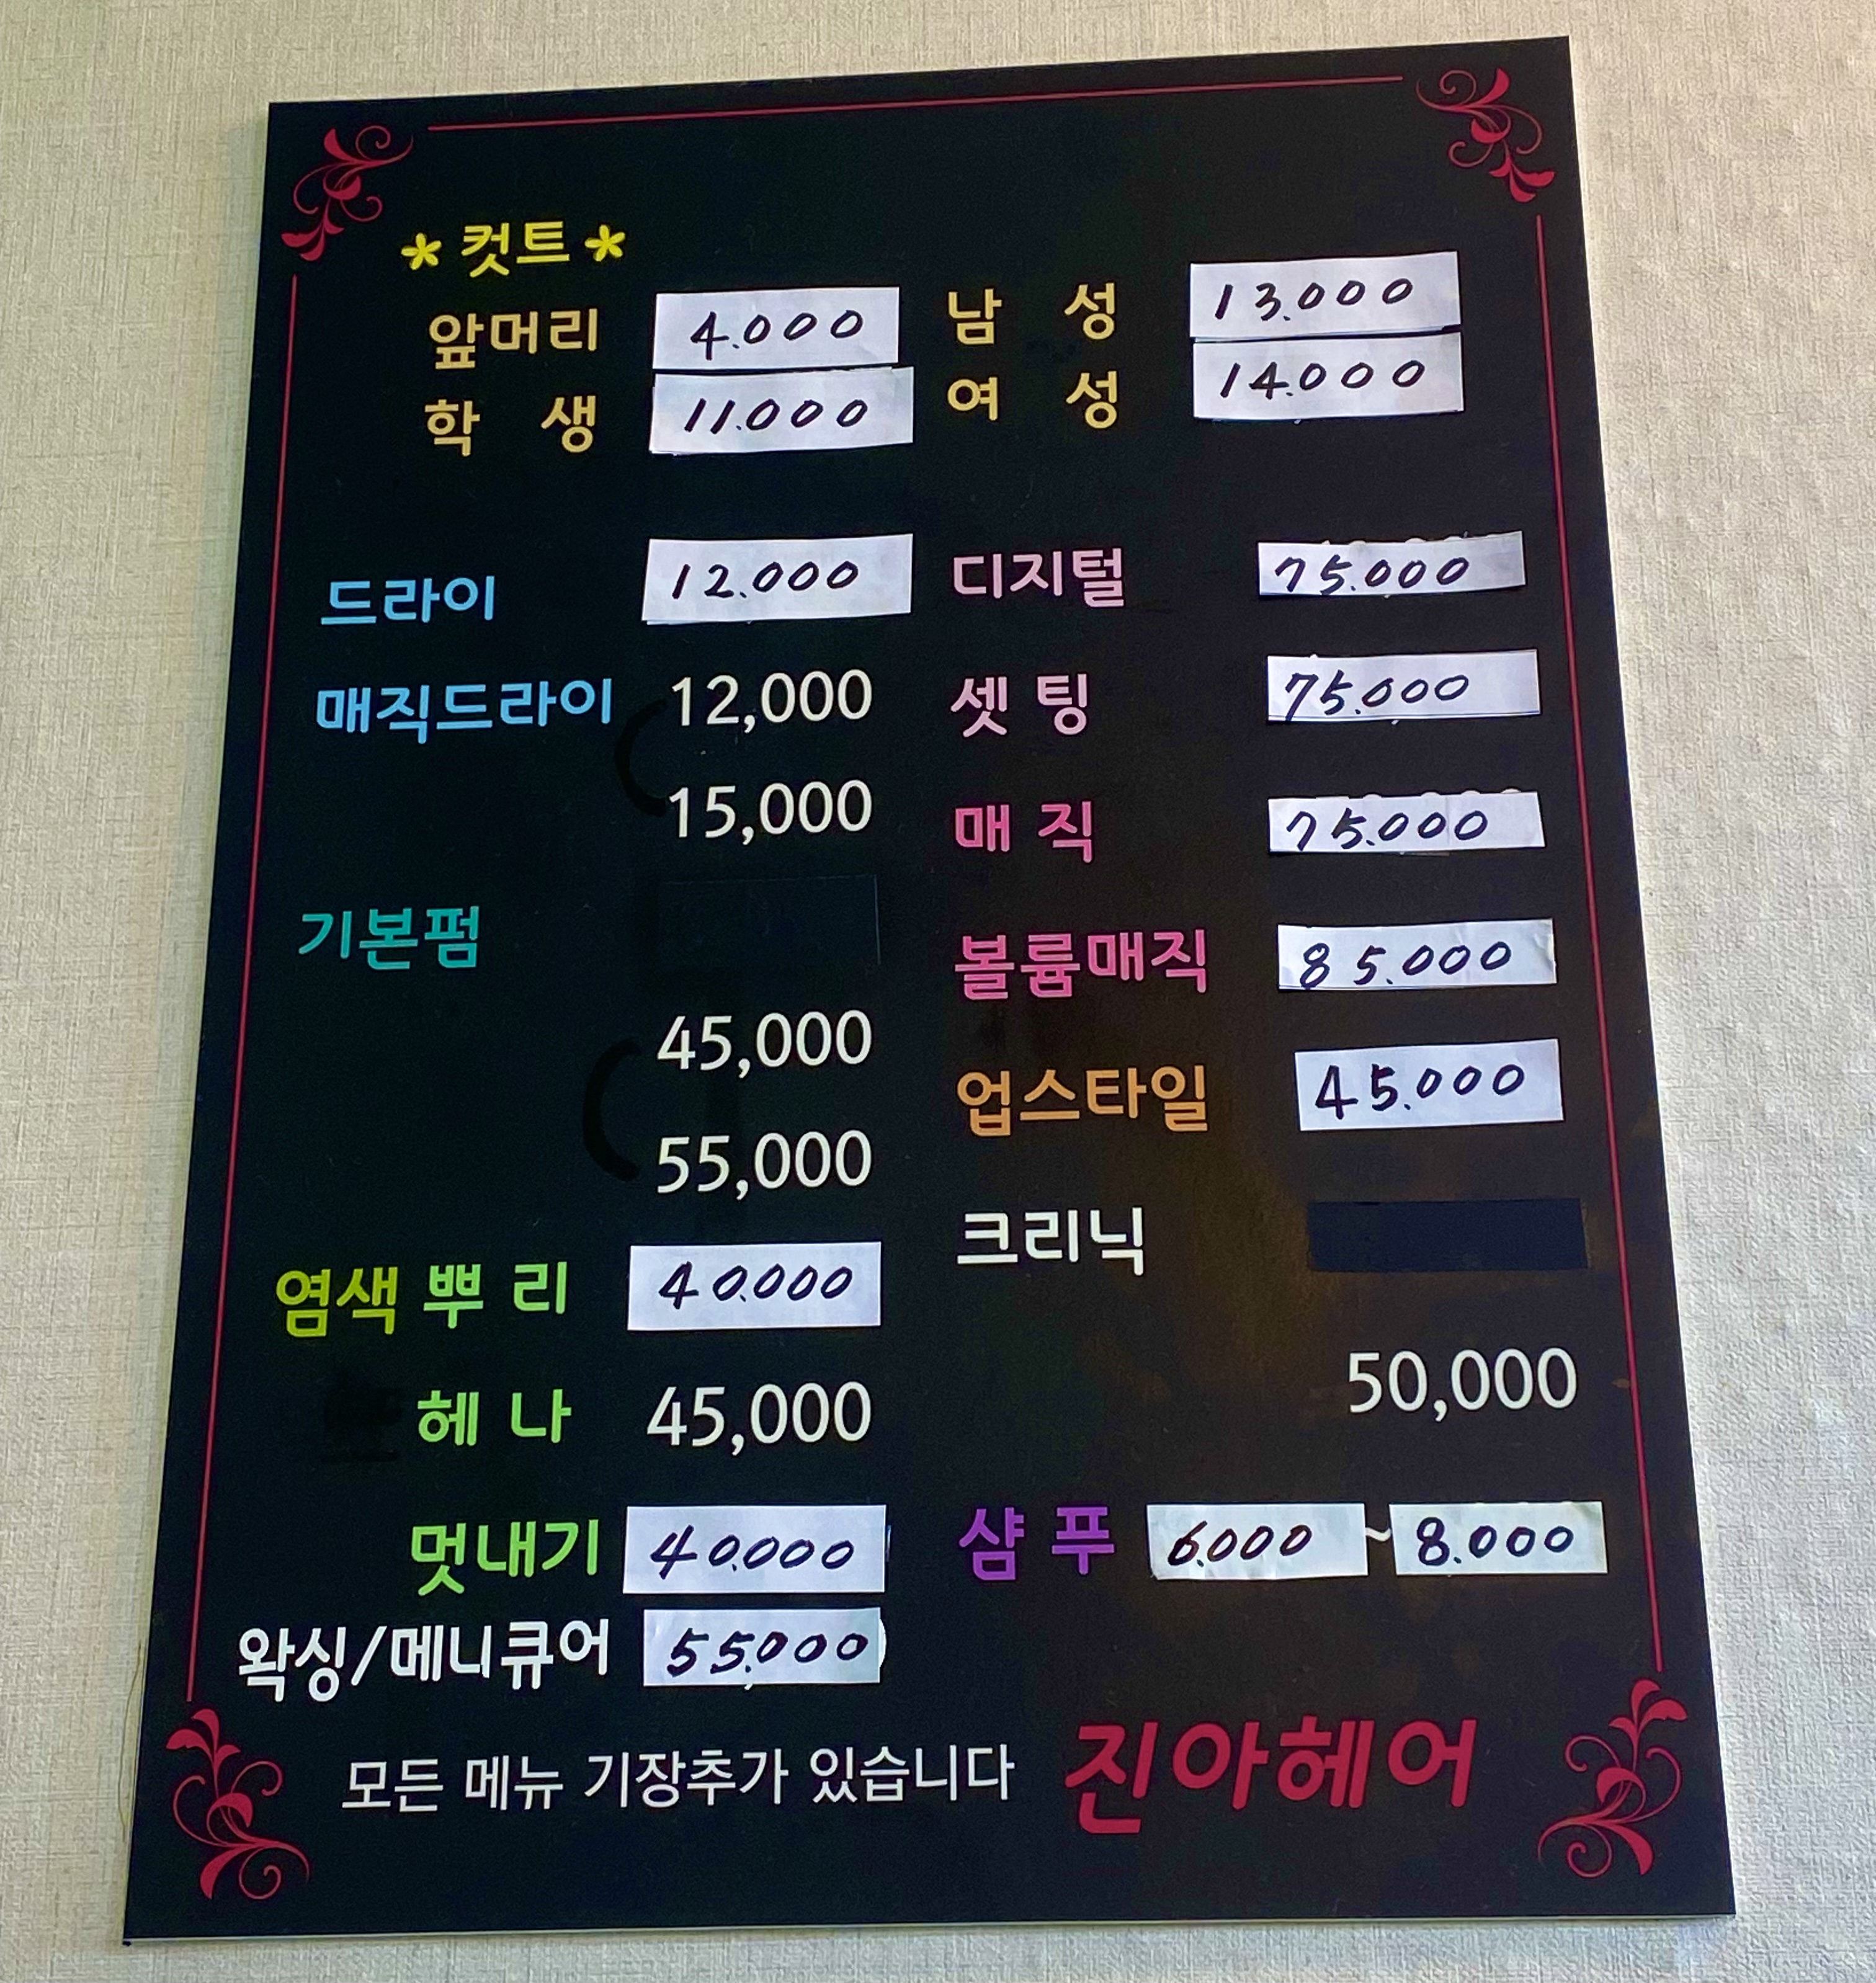 * 컷트 *
앞머리 4.000 남 성 13.000
학 생 11.000 여 성 14.000
드라이 12.000 디지털 75.000
매직드라이 12,000 셋 팅 75.000
15,000 매 직 75.000
기본펌 볼륨매직 85.000
45,000 업스타일 45.000
55,000 크리닉
염색 뿌 리 40.000
헤 나 45,000 50,000
멋내기 40.000 샴 푸 6.000 ~ 8.000
왁싱/메니큐어 55.000
모든 메뉴 기장추가 있습니다 진아헤어